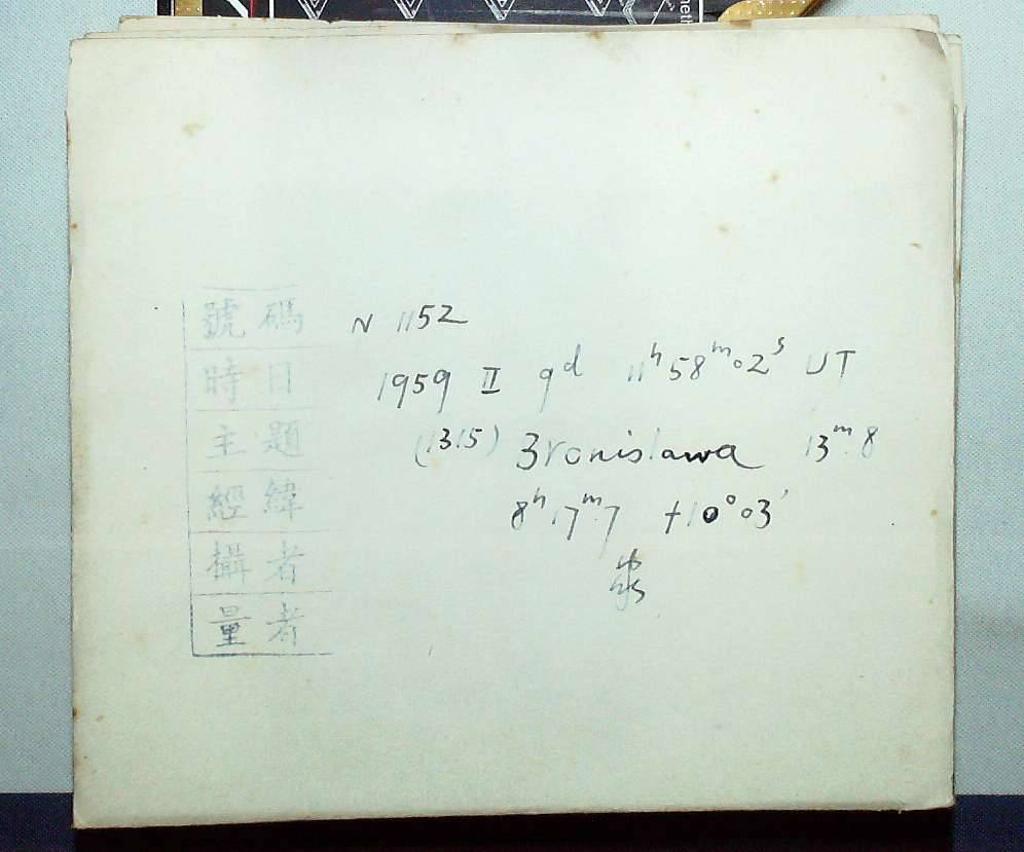 號碼 N 1152
時日 1959 II 9ᵈ 11ʰ58ᵐ02ˢ UT
主題 (1315) Bronislawa 13ᵐ.8
經緯 8ʰ17ᵐ.7 +10°03'
攝者
量者